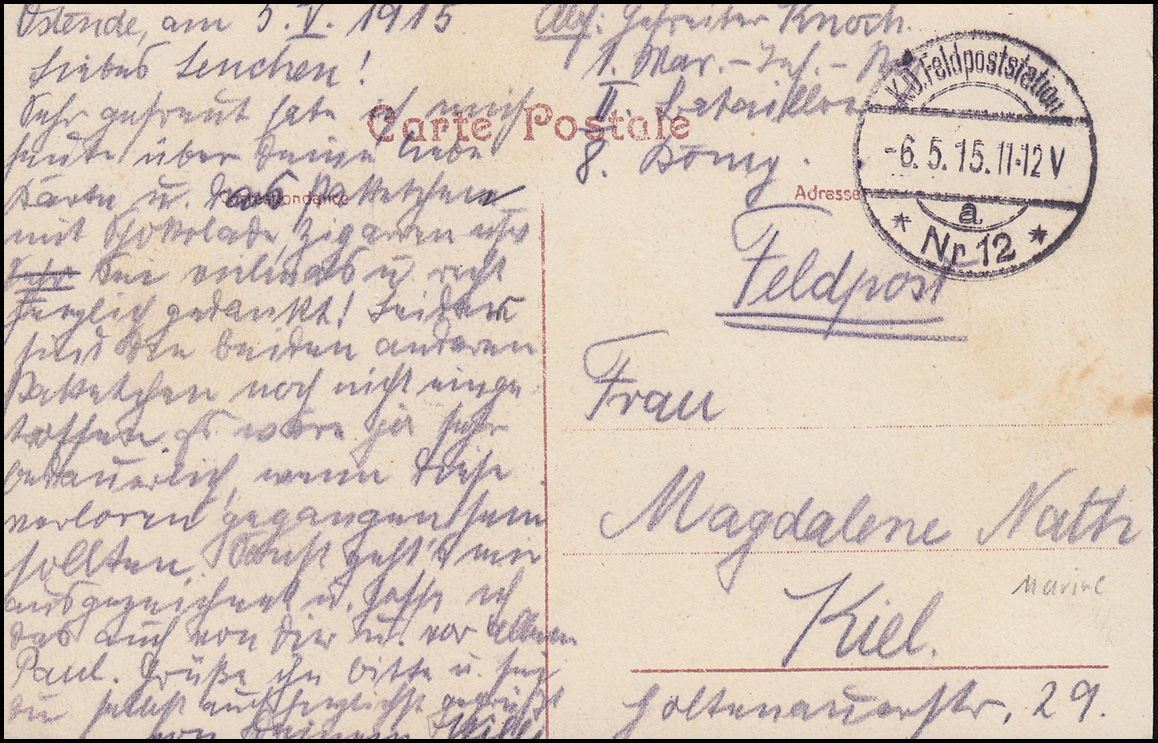 Ostende, am 5. V. 1915
Liebes Lenchen!
Sehr gefreut habe ich mich
heute über Deine liebe
Karte u. das Paketchen
mit Schokolade, Zigarren usw
Sehr Sei vielmals u. recht
herzlich gedankt! Leider
sind die beiden anderen
Paketchen noch nicht einge
troffen. Es wäre ja sehr
bedauerlich, wenn diese
verloren gegangen sein
sollten. Sonst geht's mir
ausgezeichnet u. hoffe ich
das auch von Dir u. vor allem
Paul. Grüße ihn bitte u. sei
Du selbst auch herzlichst gegrüßt
von Deinem Willi
Abs: Gefreiter Knoch.
1. Mar.-Inf.-
II. Bataillon
8. Komp.
Carte Postale
Correspondance
Adresse
K.D. Feldpoststation
-6.5.15.11-12V
a
* Nr 12 *
Feldpost
Frau
Magdalene Nath
Marine
Kiel.
Holtenauerstr. 29.